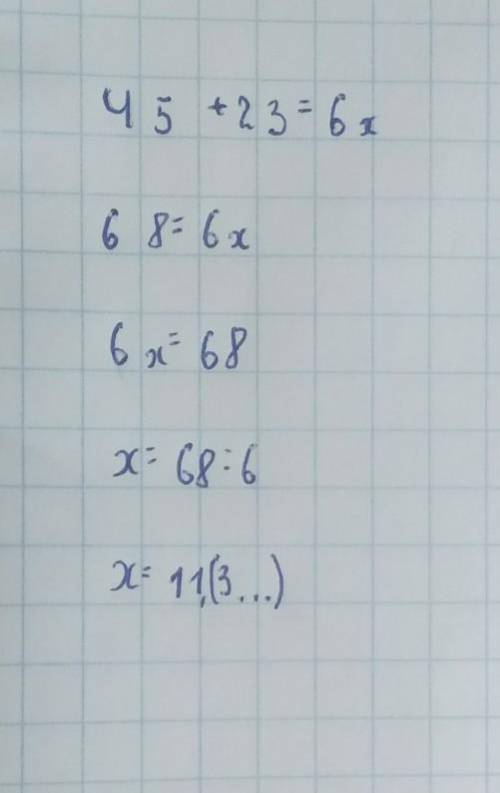 45 + 23 = 6x
68 = 6x
6x = 68
x = 68 : 6
x = 11,(3...)